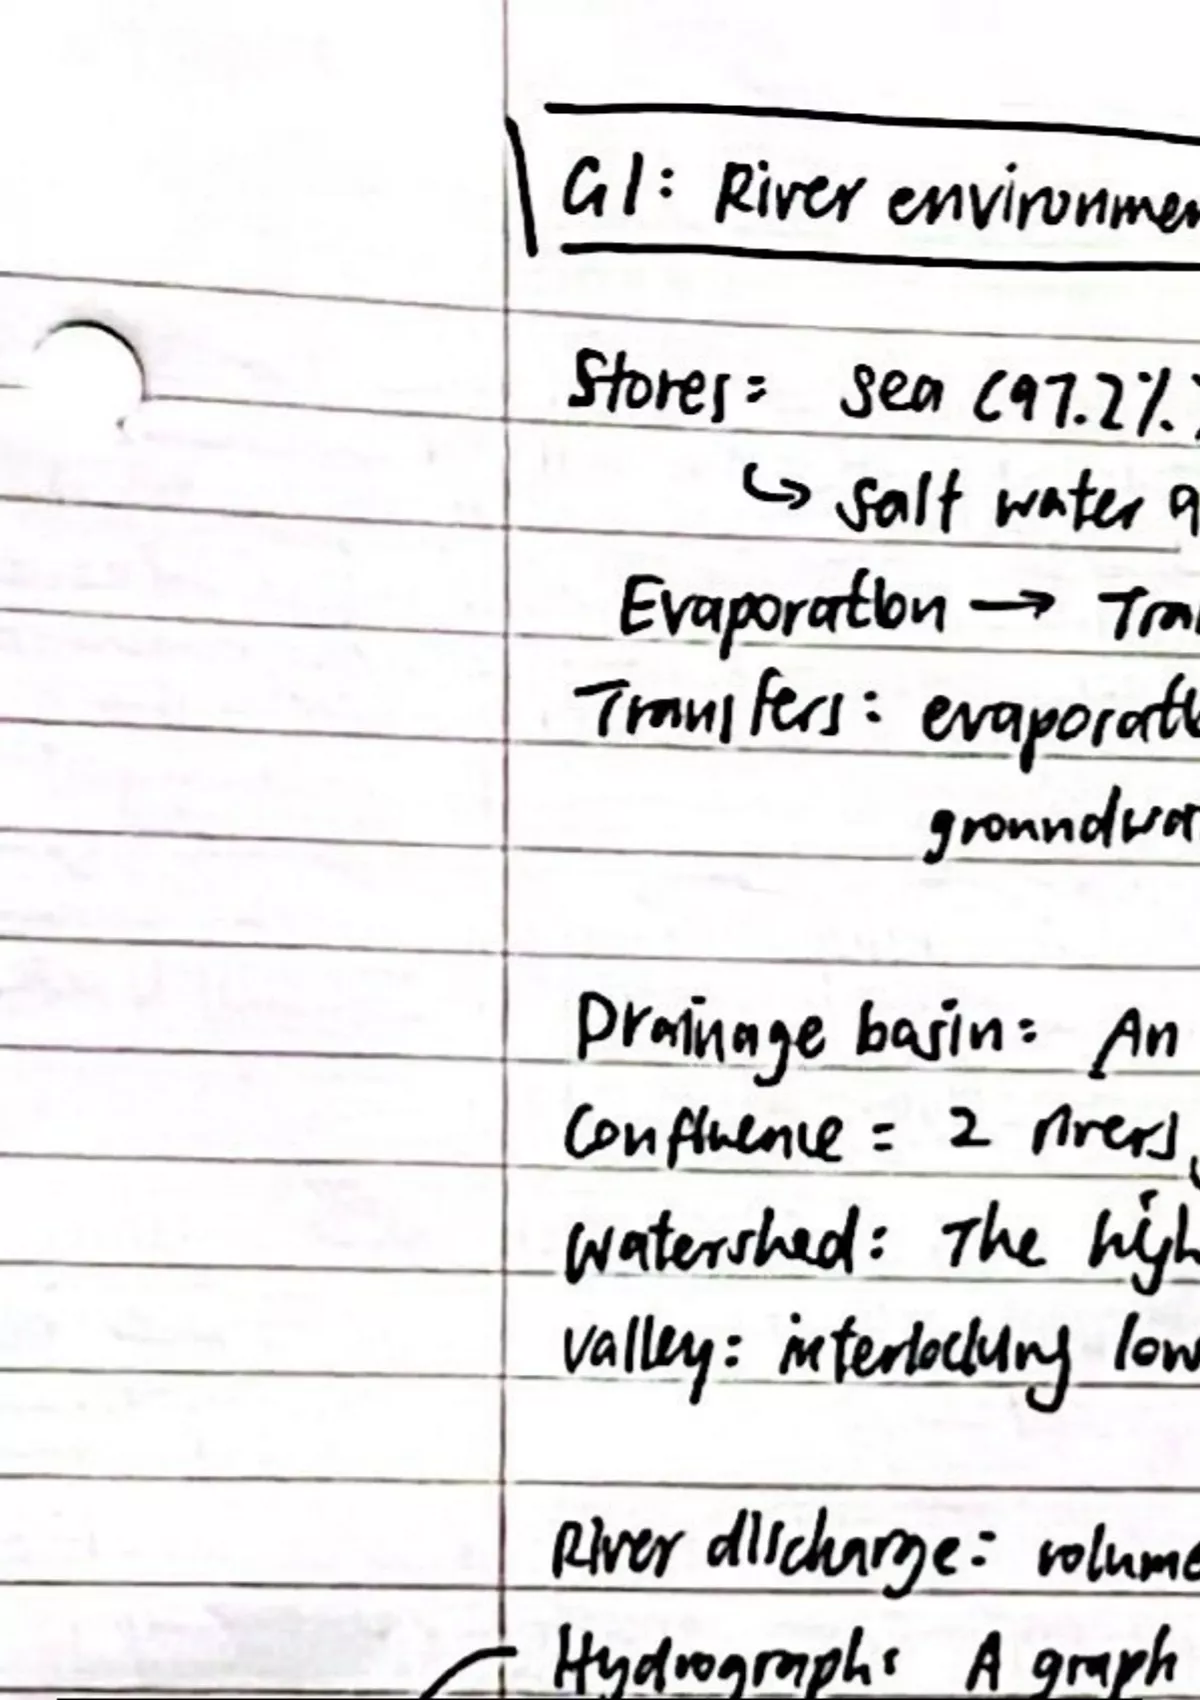 G1: River environmen
Stores: sea (97.2%)
↳ salt water
Evaporation → Tran
Transfers: evaporati
groundwat
Drainage basin: An
Confluence = 2 rivers
Watershed: The high
valley: interlocking low
River discharge: volume
Hydrograph: A graph